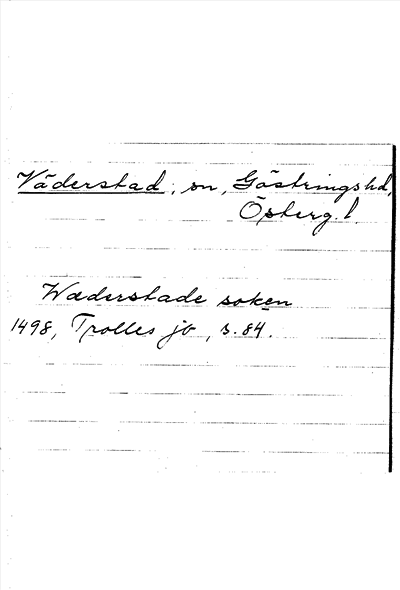 Väderstad, sn, Göstrings hd,
Östserg. l.
Wæderstade soken
1498, Trolles jb, s. 84.